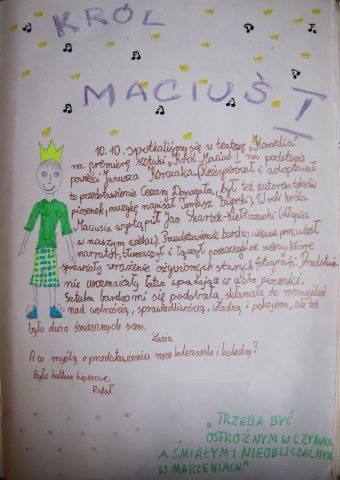 KRÓL
MACIUŚ I
10.10. spotkaliśmy się w teatrze „Komedia"
na premierę sztuki „Król Maciuś I" na podstawie
powieści Janusza Korczaka. Reżyserował i adaptował
to przedstawienie Cezary Domagała, był też autorem tekstów
piosenek, muzykę napisał Tomasz Bajerski. W roli króla
Maciusia wystąpił Jan
w naszym wieku). Przedstawienie bardzo ciekawe prowadził
narrator, tłumaczył i łączył poszczególne sceny, które
sprawiały wrażenie ożywionych starych fotografii. Przedstawie-
nie urozmaicały łatwo wpadające w ucho piosenki.
Sztuka bardzo mi się podobała, skłaniała do rozmyślań
nad wolnością, sprawiedliwością, władzą i pokojem, ale też
było dużo śmiesznych scen.
Zuzia
A co myślą o przedstawieniu nasze koleżanki i koledzy?
Było
Rafał
„TRZEBA BYĆ
OSTROŻNYM W CZYNACH,
A ŚMIAŁYM I NIEOBLICZALNYM
W MARZENIACH."